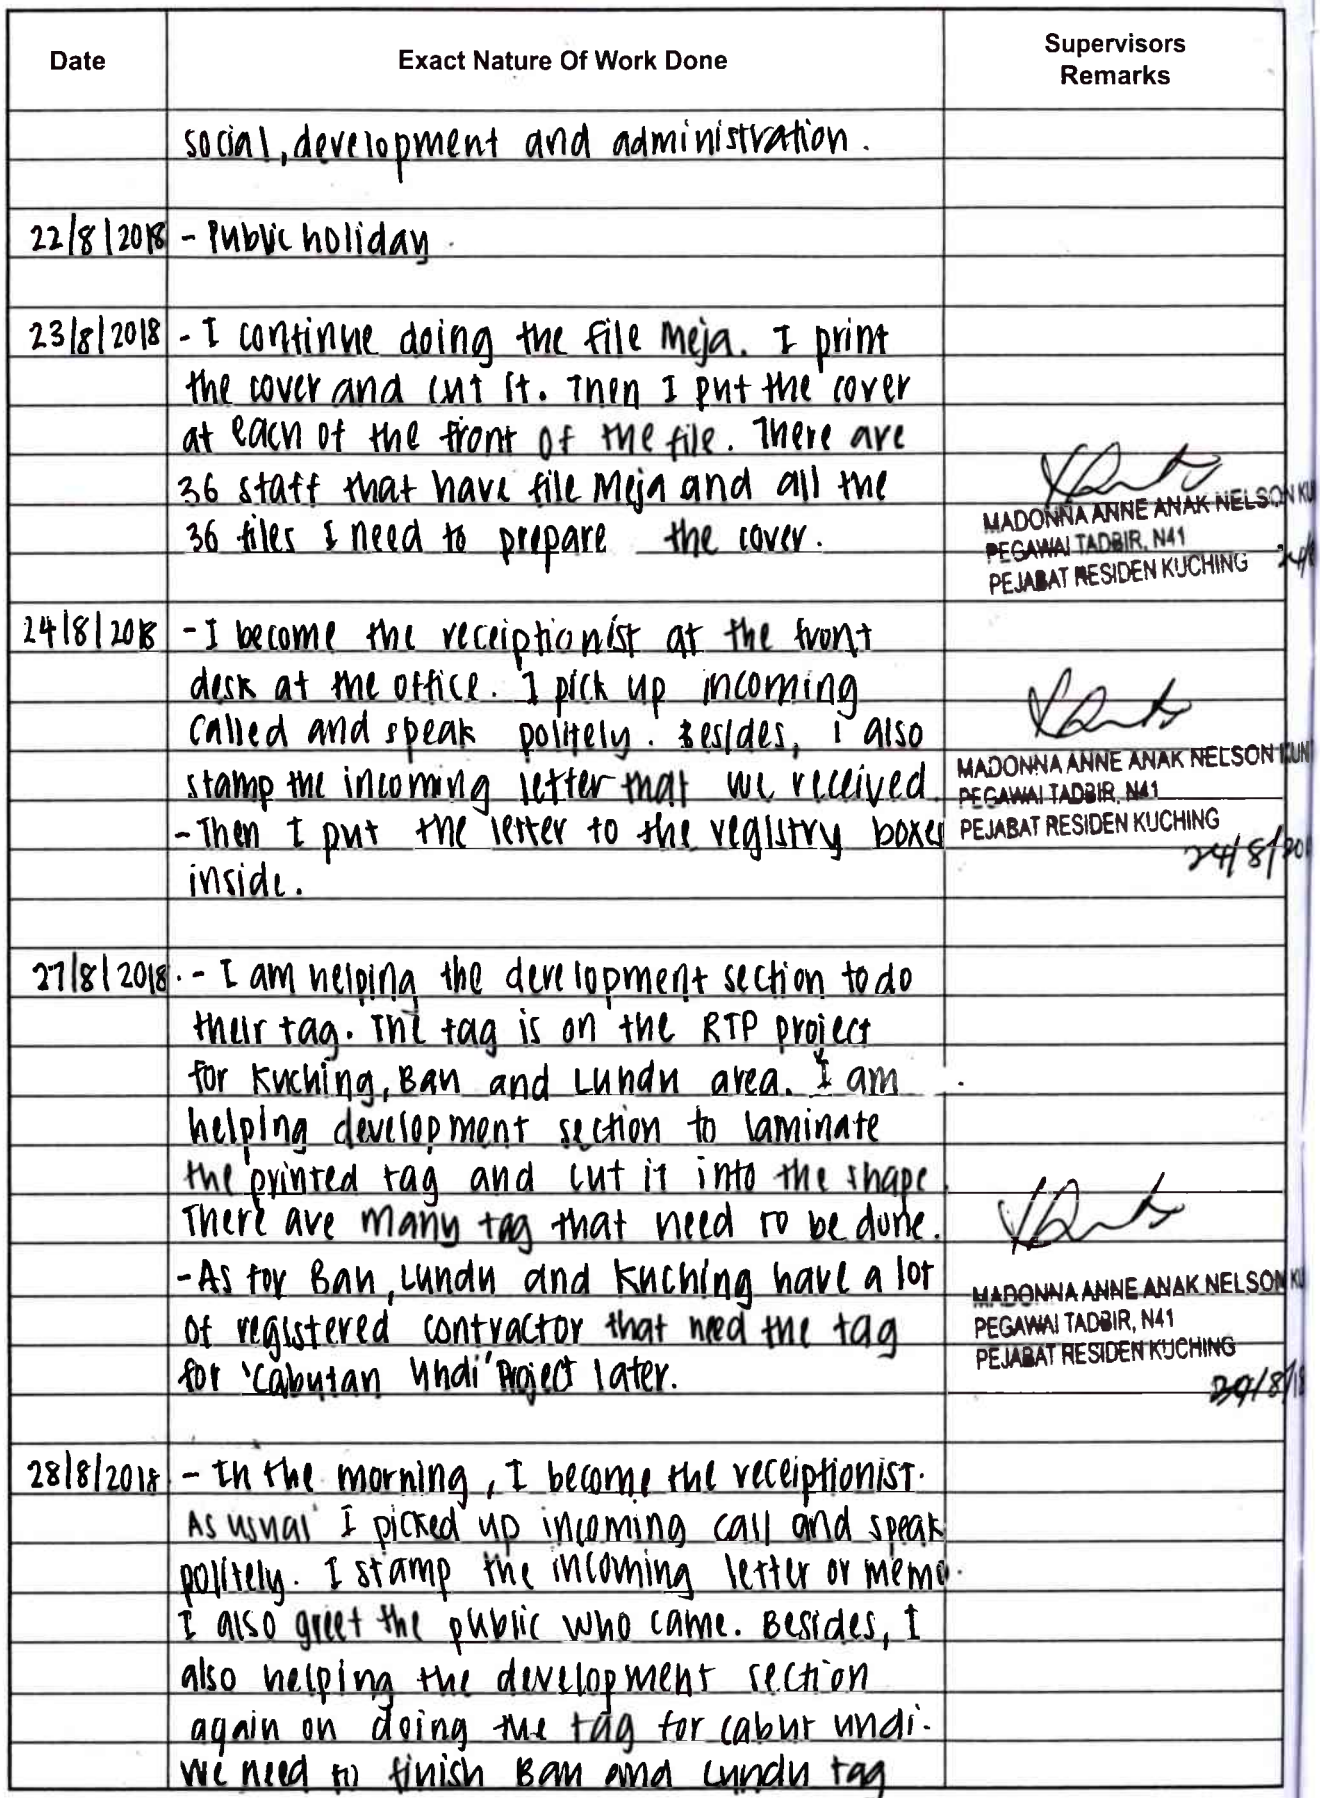 Date Exact Nature Of Work Done Supervisors
Remarks
social, development and administration.
22/8/2018 - Public holiday.
23/8/2018 - I continue doing the file Meja. I print
the cover and cut it. Then I put the cover
at each of the front of the file. There are
36 staff that have file Meja and all the
36 files I need to prepare the cover.
MADONNA ANNE ANAK NELSON KU
PEGAWAI TADBIR, N41
PEJABAT RESIDEN KUCHING
24/8
24/8/2018 - I become the receiptionist at the front
desk at the office. I pick up incoming
called and speak politely. Besides, i also
stamp the incoming letter that we received.
- Then I put the letter to the registry boxes
inside.
MADONNA ANNE ANAK NELSON KUN
PEGAWAI TADBIR, N41
PEJABAT RESIDEN KUCHING
24/8/201
27/8/2018. - I am helping the development section to do
their tag. The tag is on the RTP project
for Kuching, Bau and Lundu area. I am
helping development section to laminate
the printed tag and cut it into the shape.
There are many tag that need to be done.
- As for Bau, Lundu and Kuching have a lot
of registered contractor that need the tag
for 'Cabutan Undi' Project later.
MADONNA ANNE ANAK NELSON KU
PEGAWAI TADBIR, N41
PEJABAT RESIDEN KUCHING
28/8/2018 - In the morning, I become the receiptionist.
As usual I picked up incoming call and speak
politely. I stamp the incoming letter or memo.
I also greet the public who came. Besides, I
also helping the development section
again on doing the tag for cabut undi.
We need to finish Bau and Lundu tag